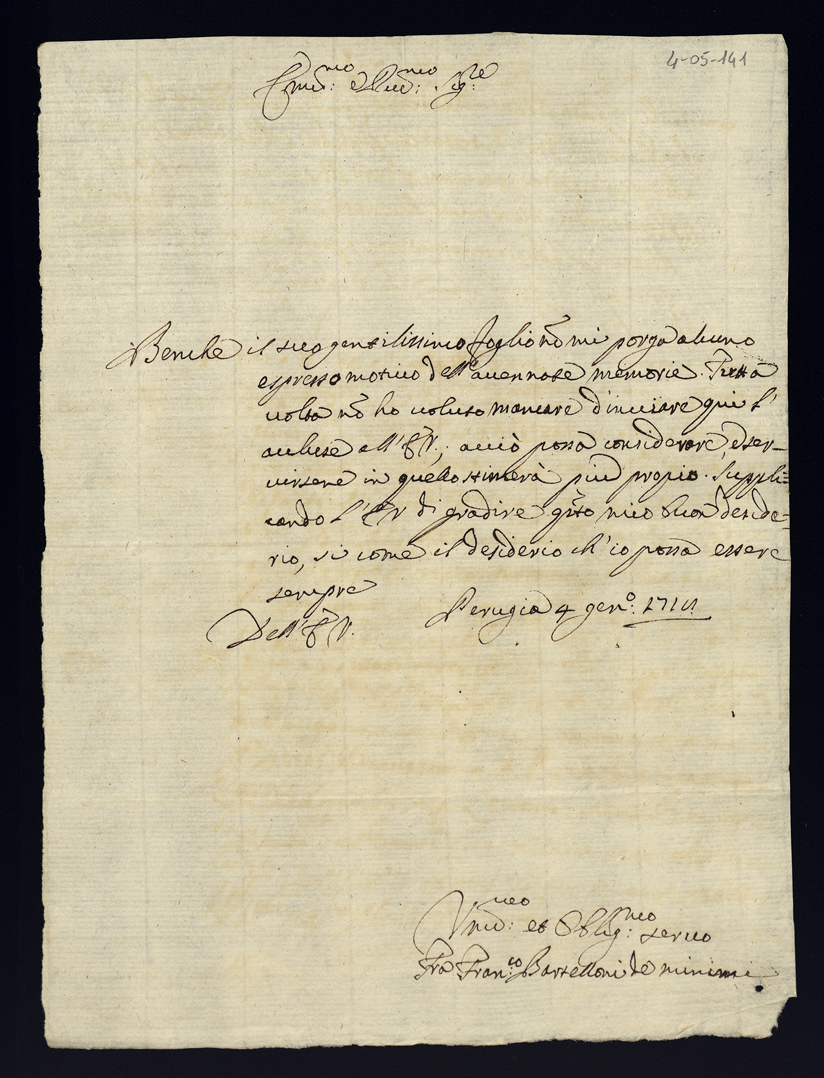 4-05-141
Em̃:mo e Rev:mo Sig:re
Benche il suo gentilissimo foglio nõ mi porga alcuno
espresso motivo dell' avennate memorie. Tutta
volta nõ ho voluto mancare d'inviare qui l'
accluse all' E V., acciò possa considerare, e ser-
virsene in quello stimerà più proprio. Suppli=
cando l' E V di gradire q̃sto mio buon deside=
rio, si come il desiderio ch' io possa essere
sempre
Dell' E V. Perugia 4 gen:o
Um:mo et Oblig:mo servo
Fra Fran:co Bartelloni de minimi